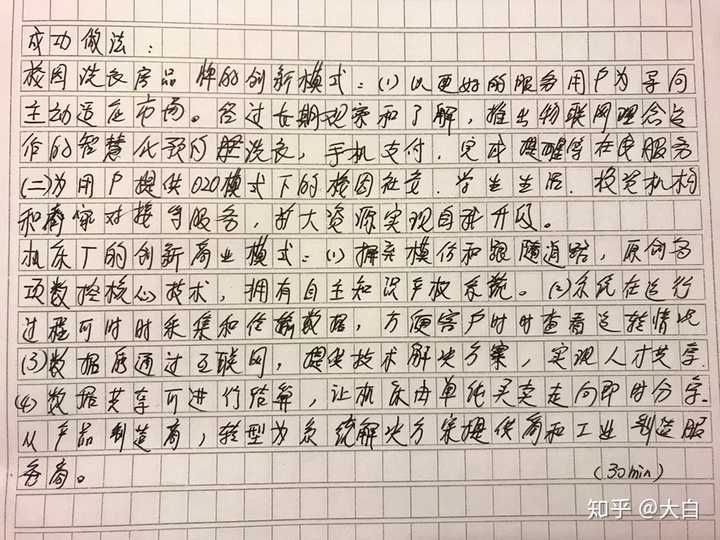 成功做法：
校园洗衣房品牌的创新模式：(1)以更好的服务用户为导向
主动适应市场。经过长期观察和了解，推出物联网理念运
作的智慧化预约洗衣，手机支付，完毕提醒等在线服务
(二)为用户提供O2O模式下的校园社交、学生生活、校党机构
和商家对接等服务，扩大资源实现自我开发。
机床厂的创新商业模式：(1)摒弃模仿和跟随道路，原创多
项数控核心技术，拥有自主知识产权系统。(2)系统在运行
过程可时时采集和传输数据，方便客户时时查看运转情况
(3)数据后通过互联网，提供技术解决方案，实现人才共享。
(4)数据共享可进行结算，让机床由单纯买卖走向即时分享。
从产品制造商，转型为系统解决方案提供商和工业制造服
务商。 (30min)
知乎 @大白